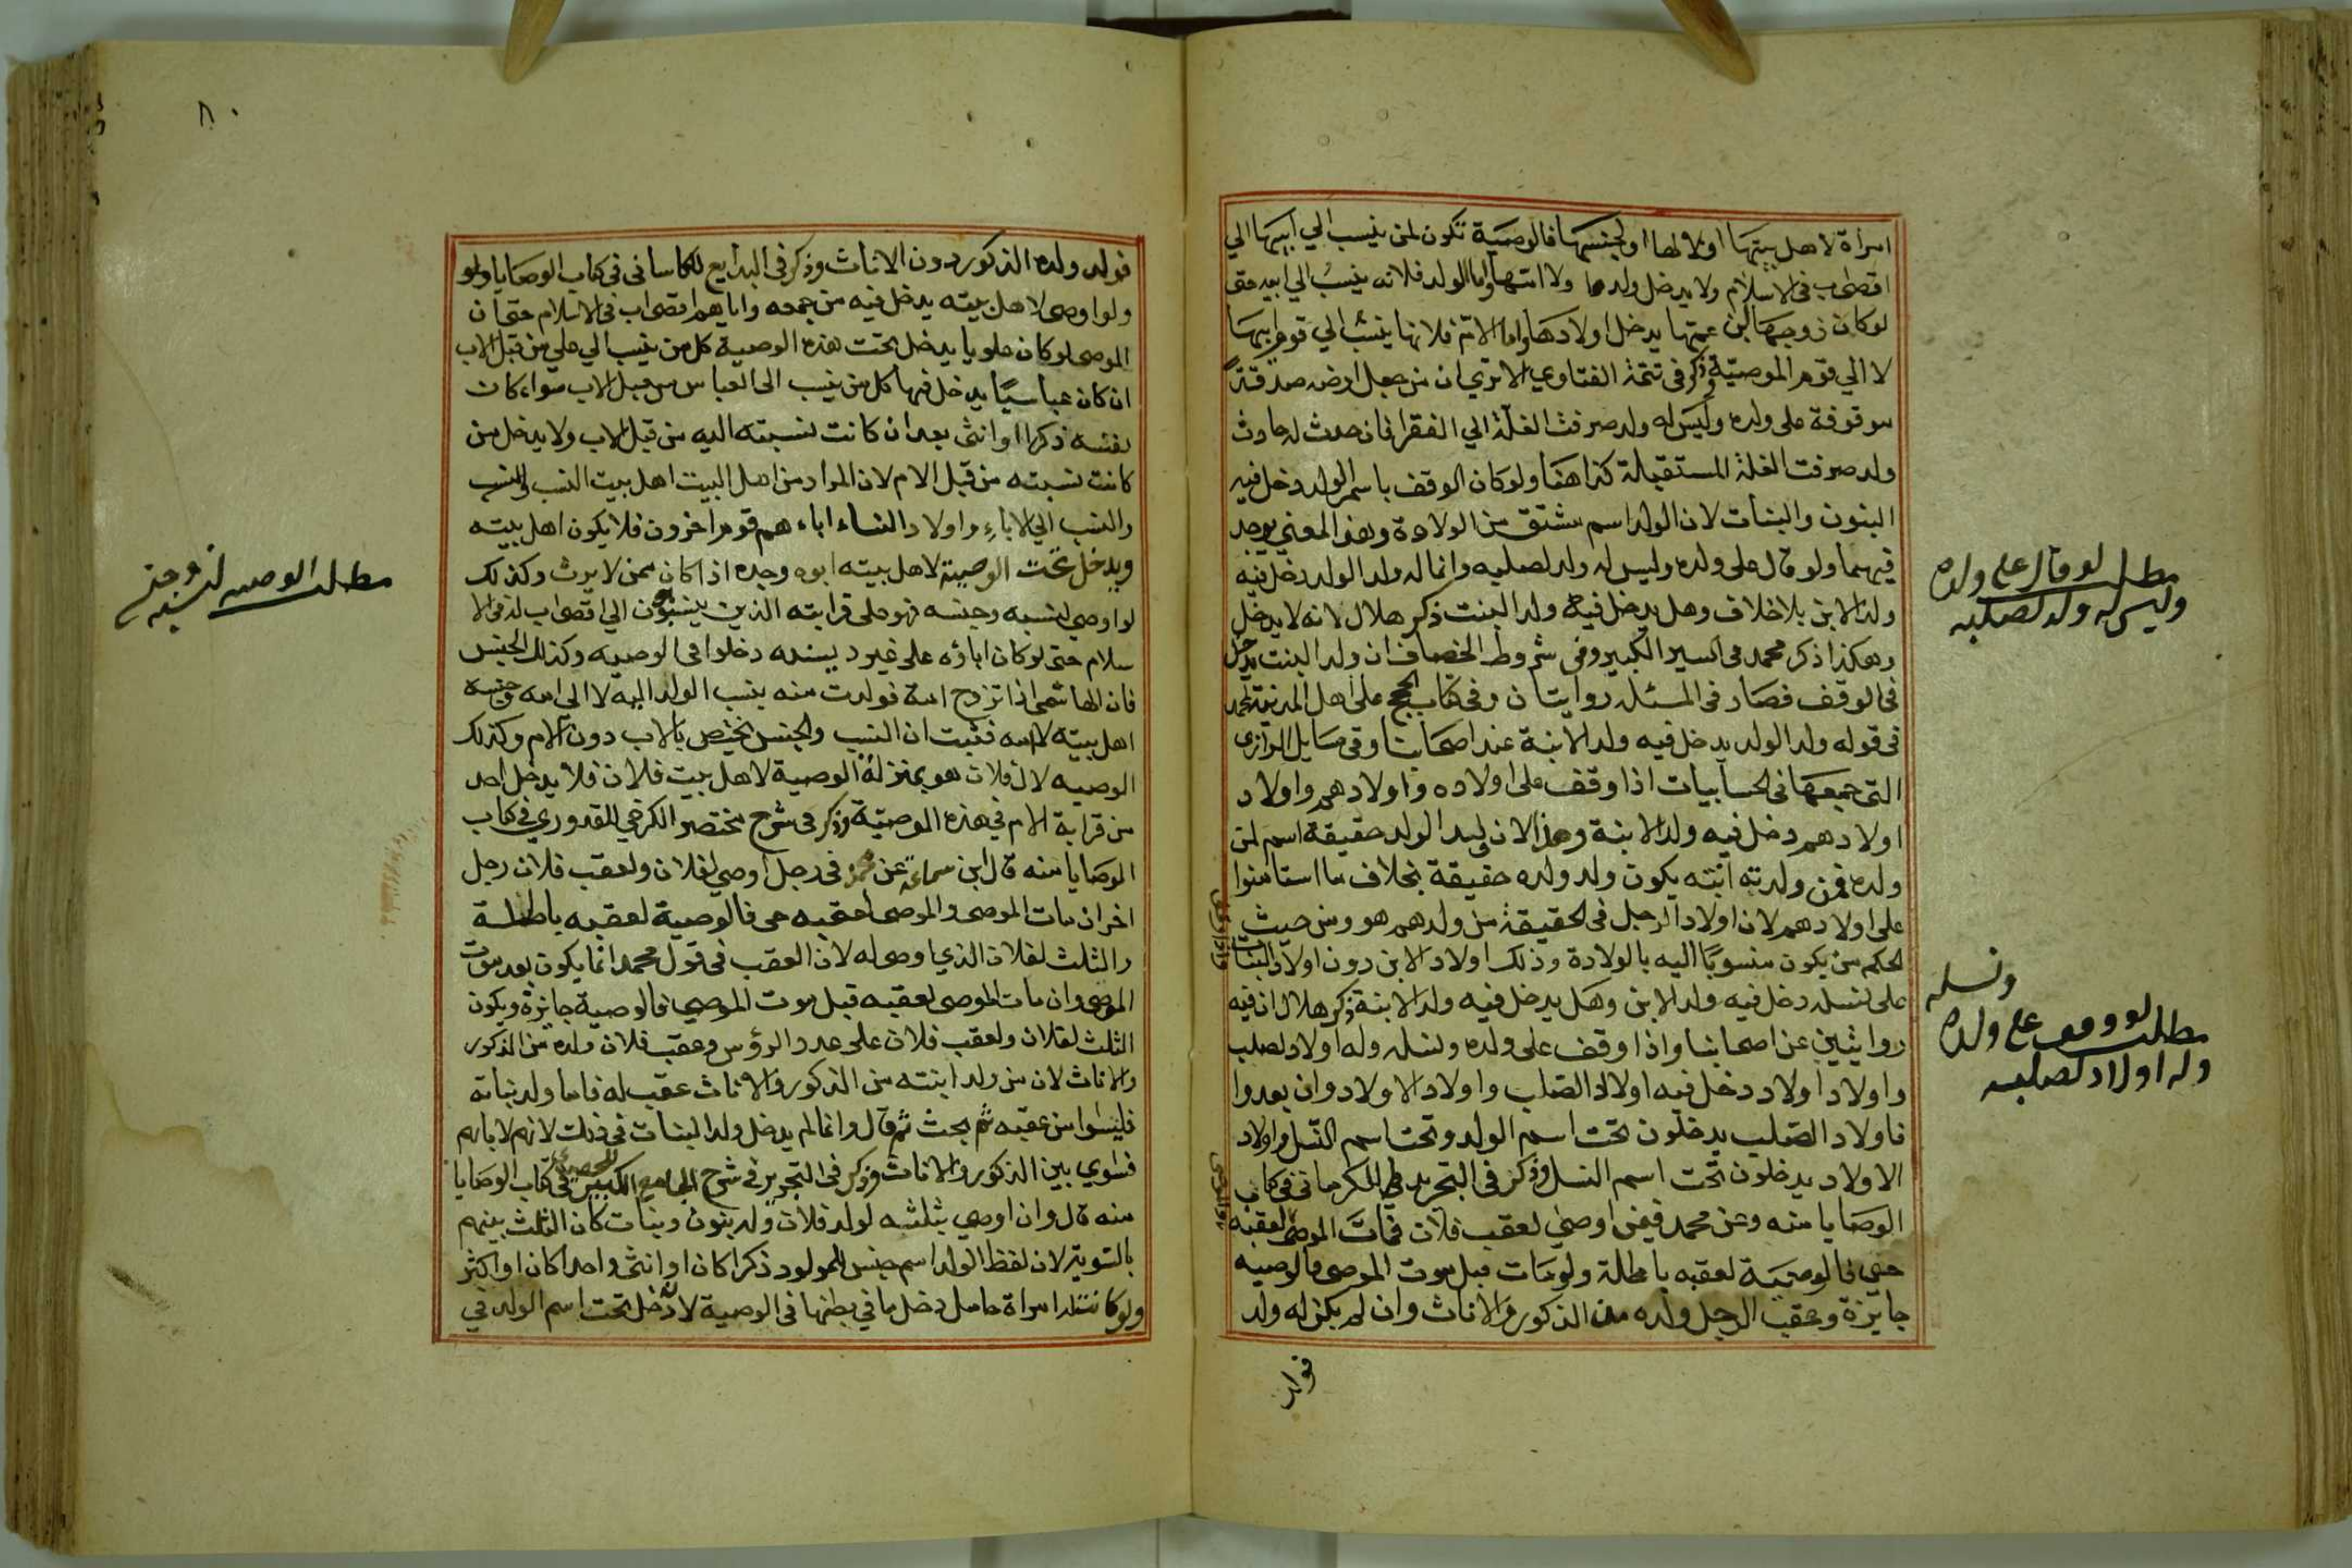 امراة لاهل بيتها اولالها او لجنسها فالوصية تكون لمن ينسب الي ابيها الي
اقصى اب فى الاسلام ولا يدخل ولدها ولا امتها واما الولد فلانه ينسب الي ابيه حتى
لو كان زوجها ابن عمتها يدخل اولادها واما الام فلانها ينسب الي قوم ابيها
لا الي قوم الموصية وذكر فى تتمة الفتاوي الا تري ان من جعل ارضه صدقة
موقوفة على ولده وليس له ولد صرفت الغلة الي الفقرا فان حدث له حادث
ولد صرفت الغلة المستقبلة كذا هنا ولو كان الوقف باسم الولد دخل فيه
البنون والبنات لان الولد اسم مشتق من الولادة وهذا المعني يوجد
فيهما ولو قال على ولده وليس له ولد لصلبه وانما له ولد الولد دخل فيه
ولد الابن بلا خلاف وهل يدخل فيه ولد البنت ذكر هلال لانه لا يدخل
وهكذا ذكر محمد فى السير الكبير وفى شروط الخصاف ان ولد البنت يدخل
فى الوقف فصار فى المسئلة روايتان وفى كتاب الحج على اهل المدينة لمحمد
فى قوله ولد الولد يدخل فيه ولد الابنة عند اصحابنا وفى مسايل الرازي
التى جمعها فى الحسابيات اذا وقف على اولاده واولادهم واولاد
اولادهم دخل فيه ولد الابنة وهذا لان ليد الولد حقيقة اسم لمن
ولده فمن ولدته ابنته يكون ولد ولده حقيقة بخلاف ما استامنوا
على اولادهم لان اولاد الرجل فى الحقيقة من ولدهم هو ومن حيث
الحكم من يكون منسوبا اليه بالولادة وذلك اولاد الابن دون اولاد البنات
على نسله دخل فيه ولد الابن وهل يدخل فيه ولد الابنة ذكر هلال ان فيه
روايتين عن اصحابنا واذا وقف على ولده ونسله وله اولاد لصلب
واولاد اولاد دخل فيه اولاد الصلب واولاد الاولاد وان بعدوا
فاولاد الصلب يدخلون تحت اسم الولد وتحت اسم النسل واولاد
الاولاد يدخلون تحت اسم النسل وذكر فى التجريد للكرمانى فى كتاب
الوصايا منه وعن محمد فيمن اوصي لعقب فلان فمات الموصى لعقبه
حتى فالوصية لعقبه باطلة ولو مات قبل موت الموصى فالوصيه
جايزة وعقب الرجل ولده من الذكور والاناث وان لم يكن له ولد
فولد
مطلب لو قال على ولده
وليس له ولد لصلبه
ونسله
مطلب لو وقف على ولده
وله اولاد لصلبه
٨٠
فولد ولده الذكور دون الاناث وذكر فى البدايع للكاسانى فى كتاب الوصايا ولو
ولو اوصى لاهل بيته يدخل فيه من جمعه واياهم اقصى اب فى الاسلام حتى ان
الموصى لو كان علويا يدخل تحت هذه الوصية كل من ينسب الي علي من قبل الاب
ان كان عباسيا يدخل فيها كل من ينسب الى العباس من قبل الاب سواء كان
بفسه ذكرا او انثى بعد ان كانت نسبته اليه من قبل الاب ولا يدخل من
كانت نسبته من قبل الام لان المراد من اهل البيت اهل بيت النسب والنسب
والنسب الي الاباء واولاد النساء اباء هم قوم اخرون فلا يكون اهل بيته
ويدخل تحت الوصية لاهل بيته ابوه وجده اذا كان ممن لا يرث وكذلك
لو اوصي لنسبه وجنسه فهو على قرابته الذين ينسبون الي اقصى اب له فى الا
سلام حتى لو كان اباؤه على غير دينه دخلوا فى الوصيه وكذلك الجنس
فان الهاشمى اذا تزوج امة فولدت منه ينسب الولد اليه لا الي امه وجنسه
اهل بيته لا امه فثبت ان النسب والجنس يختص بالاب دون الام وكذلك
الوصيه لال فلان هو بمنزلة الوصية لاهل بيت فلان فلا يدخل احد
من قرابة الام في هذه الوصية وذكر فى شرح مختصر الكرخي للقدوري فى كتاب
الوصايا منه قال ابن سماعة عن محمد فى رجل اوصي لفلان ولعقب فلان رجل
اخر ان مات الموصى والموصى لعقبه حى فالوصية لعقبه باطلة
والثلث لفلان الذي اوصى له لان العقب فى قول محمد انما يكون بعد موت
الموصى وان مات الموصى لعقبه قبل موت الموصي فالوصية جايزة ويكون
الثلث لفلان ولعقب فلان على عدد الرؤس وعقب فلان ولده من الذكور
والاناث لان من ولد ابنته من الذكور والاناث عقب له فاما ولد بناته
فليسوا من عقبه ثم بحث ثم قال وانما لم يدخل ولد البنات فى ذلك لانهم لابايهم
فسوي بين الذكور والاناث وذكر فى التحرير فى شرح الجامع الكبير للحصيري فى كتاب الوصايا
منه قال وان اوصي بثلثه لولد فلان وله بنون وبنات كان الثلث بينهم
بالتسوية لان لفظ الولد اسم جنس للمولود ذكرا كان او انثى واحدا كان او اكثر
ولو كانت له امراة حامل دخل ما في بطنها فى الوصية لانه دخل تحت اسم الولد في
مطلب الوصيه لنسبه وجنسه